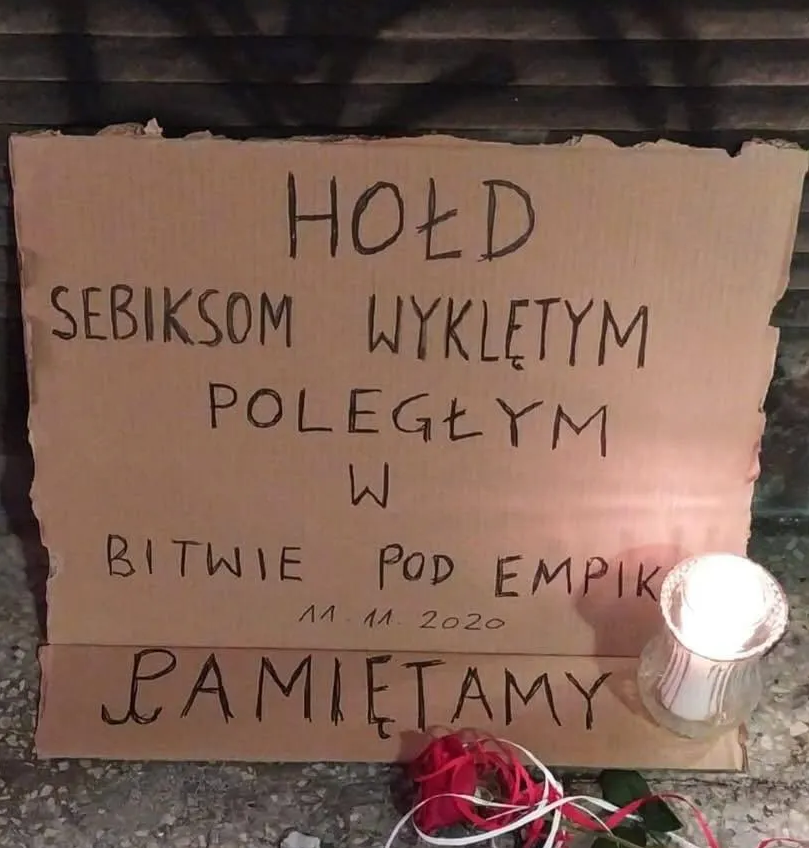 HOŁD
SEBIKSOM WYKLĘTYM
POLEGŁYM
W
BITWIE POD EMPIK
11.11.2020
PAMIĘTAMY